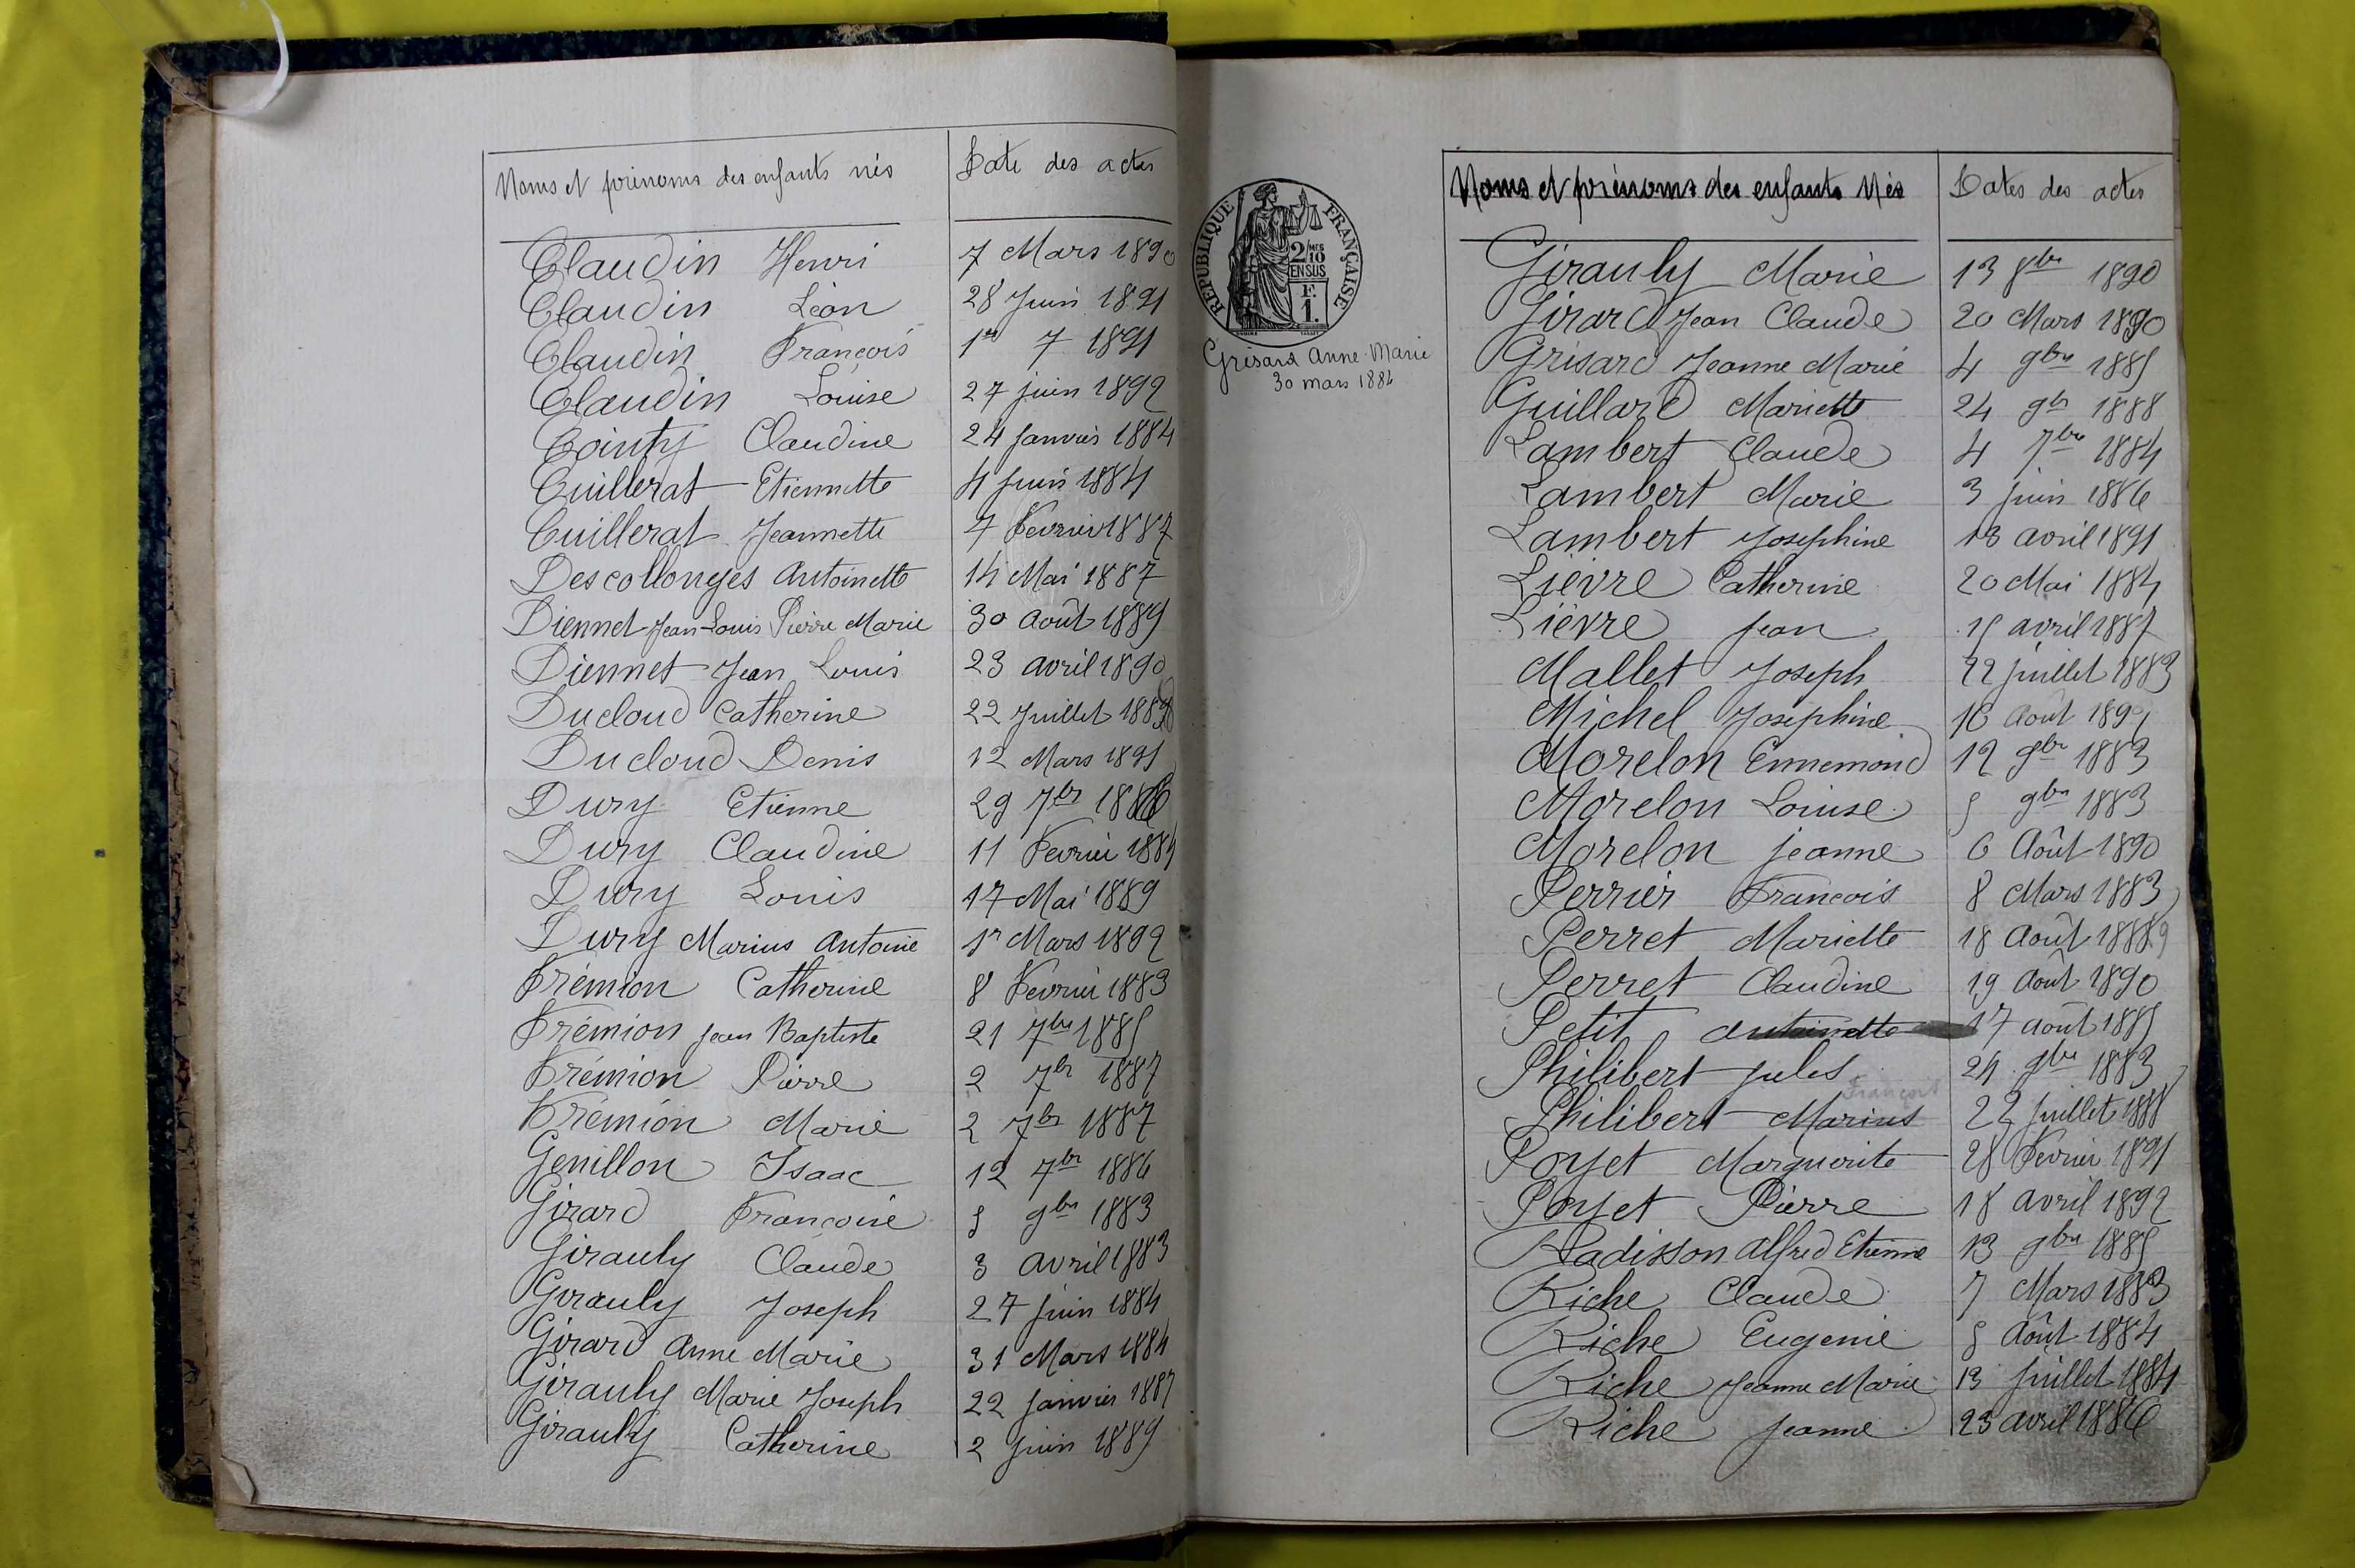 Noms et prénoms des enfants nés Date des actes
Claudin Henri 7 Mars 1890
Claudin Léon 28 Juin 1891
Claudin François 1er 7 1891
Claudin Louise 27 juin 1892
Cointy Claudine 24 Janvier 1884
Cuillerat Etiennette 4 Juin 1884
Cuillerat Jeannette 7 Février 1887
Descollonges Antoinette 14 Mai 1887
Diennet Jean-Louis Pierre Marie 30 Août 1889
Diennet Jean Louis 23 avril 1890
Ducloud Catherine 22 Juillet
Ducloud Denis 12 Mars 1891
Dury Etienne 29 7bre
Dury Claudine 11 Fevrier 1884
Dury Louis 17 Mai 1889
Dury Marius Antoine 1er Mars 1892
Frémion Catherine 8 Fevrier 1883
Frémion Jean Baptiste 21 7bre 1885
Frémion Pierre 2 7bre 1887
Frémion Marie 2 7bre 1887
Genillon Isaac 12 7bre 1886
Girard Françoise 5 9bre 1883
Girauly Claude 3 avril 1883
Girauly Joseph 27 juin 1884
Girard Anne Marie 31 Mars 1884
Girauly Marie Joseph 22 janvier 1887
Girauly Catherine 2 juin 1889
RÉPUBLIQUE FRANÇAISE
2/10 MES
EN SUS
F.
1.
Grisard Anne-Marie
30 mars 1884
Noms et prénoms des enfants Nés Dates des actes
Girauly Marie 13 8bre 1890
Girard Jean Claude 20 Mars 1890
Grisard Jeanne Marie 4 9bre 1885
Guillard Mariette 24 9bre 1888
Lambert Claude 4 7bre 1884
Lambert Marie 3 juin 1886
Lambert Josephine 13 avril 1891
Lièvre Catherine 20 Mai 1884
Lièvre Jean 15 avril 1887
Mallet Joseph 22 juillet 1883
Michel Josephine 16 Août
Morelon Ennemond 12 9bre 1883
Morelon Louise 5 9bre 1883
Morelon Jeanne 6 Août 1890
Perrier François 8 Mars 1883
Perret Mariette 18 Août
Perret Claudine 19 Août 1890
Petit Antoinette 17 août 1885
Philibert Jules 24 9bre 1883
François
Philibert Marius 22 juillet 1888
Poyet Marguerite 28 Février 1891
Poyet Pierre 18 avril 1892
Radisson Alfred Etienne 13 9bre 1885
Riche Claude 7 Mars 1883
Riche Eugenie 5 Août 1884
Riche Jeanne Marie 13 juillet 1884
Riche Jeanne 23 avril 1886